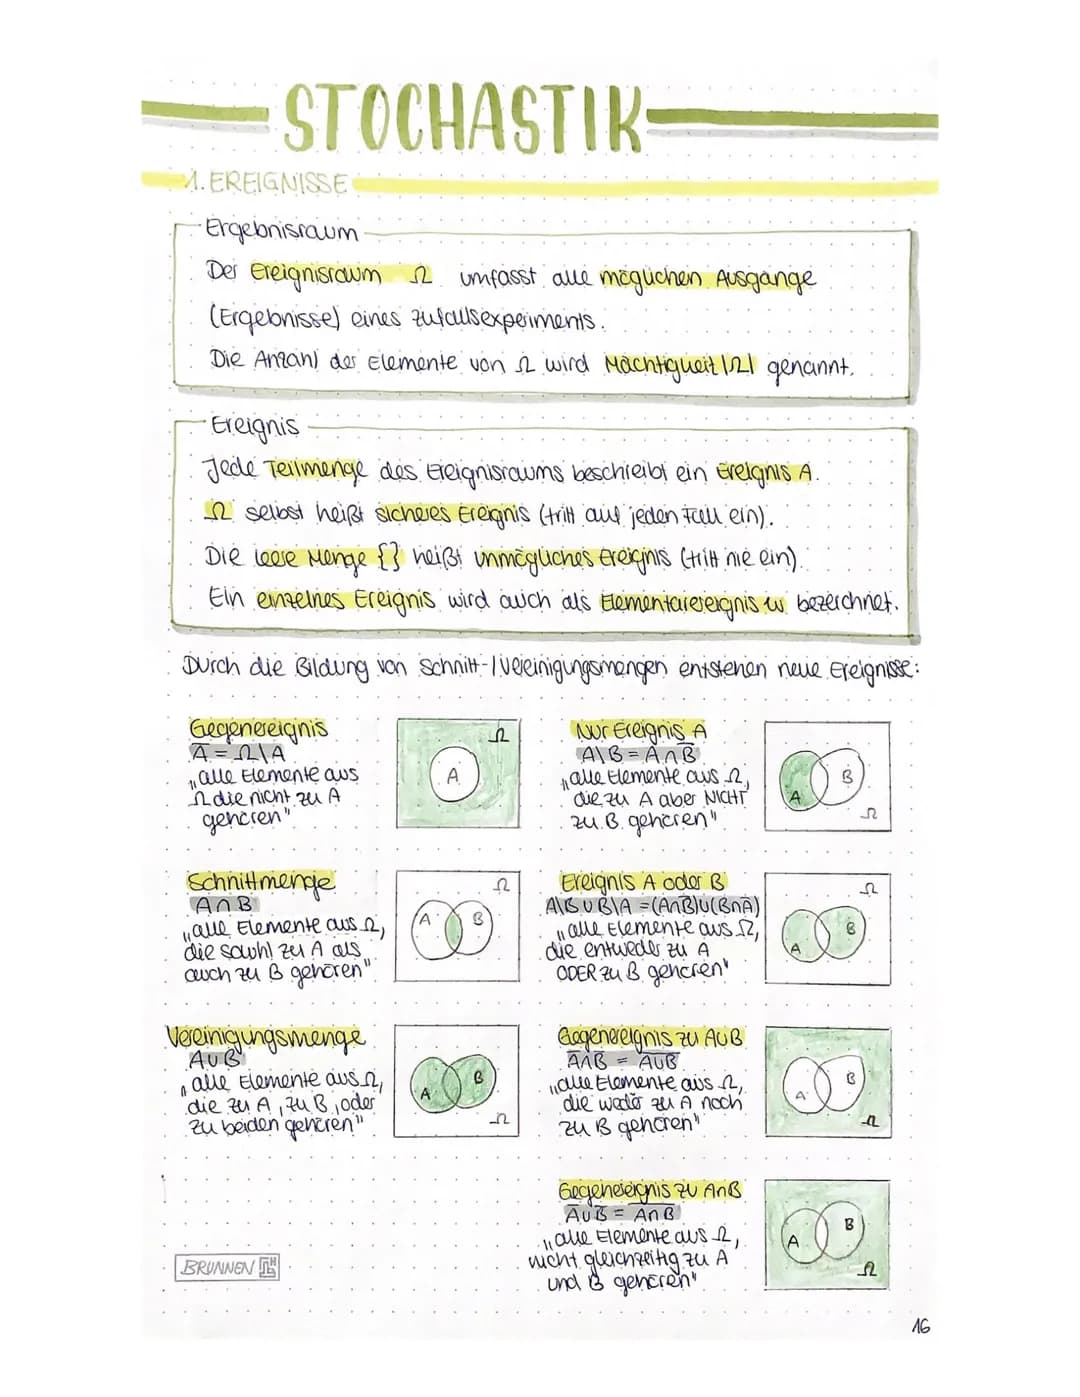 STOCHASTIK
1. EREIGNISSE
Ergebnisraum
Der Ereignisraum Ω umfasst alle möglichen Ausgänge
(Ergebnisse) eines Zufallsexperiments.
Die Anzahl der Elemente von Ω wird Mächtigkeit |Ω| genannt.
Ereignis
Jede Teilmenge des Ereignisraums beschreibt ein Ereignis A.
Ω selbst heißt sicheres Ereignis (tritt auf jeden Fall ein).
Die leere Menge {} heißt unmögliches Ereignis (tritt nie ein).
Ein einzelnes Ereignis wird auch als Elementarereignis ω bezeichnet.
Durch die Bildung von Schnitt-/Vereinigungsmengen entstehen neue Ereignisse:
Gegenereignis
A̅ = Ω\A
„alle Elemente aus
Ω die nicht zu A
gehören"
Ω
A
Nur Ereignis A
A\B = A∩B̅
„alle Elemente aus Ω,
die zu A aber NICHT
zu B gehören"
A
B
Ω
Schnittmenge
A∩B
„alle Elemente aus Ω,
die sowohl zu A als
auch zu B gehören"
Ω
A B
Ereignis A oder B
A\B∪B\A = (A∩B̅)∪(B∩A̅)
„alle Elemente aus Ω,
die entweder zu A
ODER zu B gehören"
Ω
A B
Vereinigungsmenge
A∪B
„alle Elemente aus Ω,
die zu A, zu B, oder
zu beiden gehören"
A B
Ω
Gegenereignis zu A∪B
A̅∩B̅ = A̅∪̅B̅
„alle Elemente aus Ω,
die weder zu A noch
zu B gehören"
A B
Ω
Gegenereignis zu A∩B
A̅∪B̅ = A̅∩̅B̅
„alle Elemente aus Ω,
nicht gleichzeitig zu A
und B gehören"
A B
Ω
BRUNNEN
16